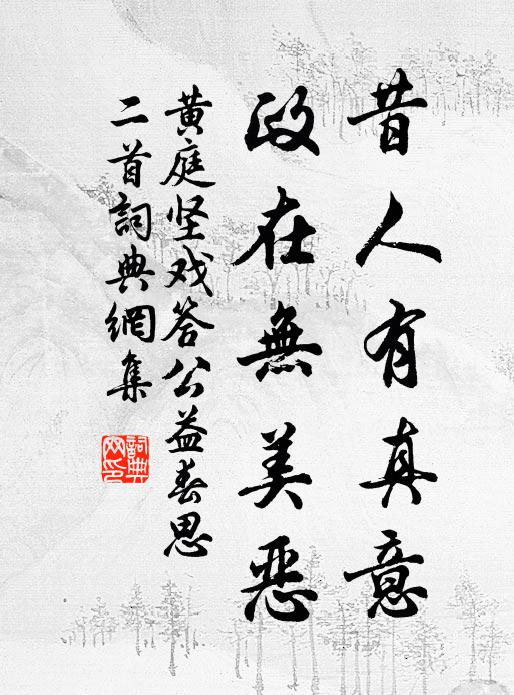 昔人有真意
政在無美惡
黄庭坚戏答公益春思
二首詞典網集
詞典网印